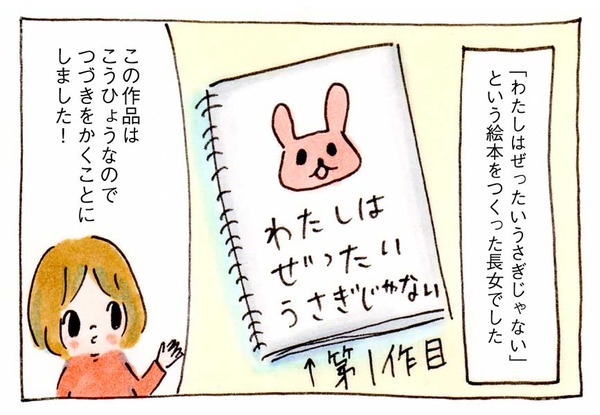 「わたしはぜったいうさぎじゃない」
という絵本をつくった長女でした
わたしは
ぜったい
うさぎじゃない
↑第1作目
この作品は
こうひょうなので
つづきをかくことに
しました!